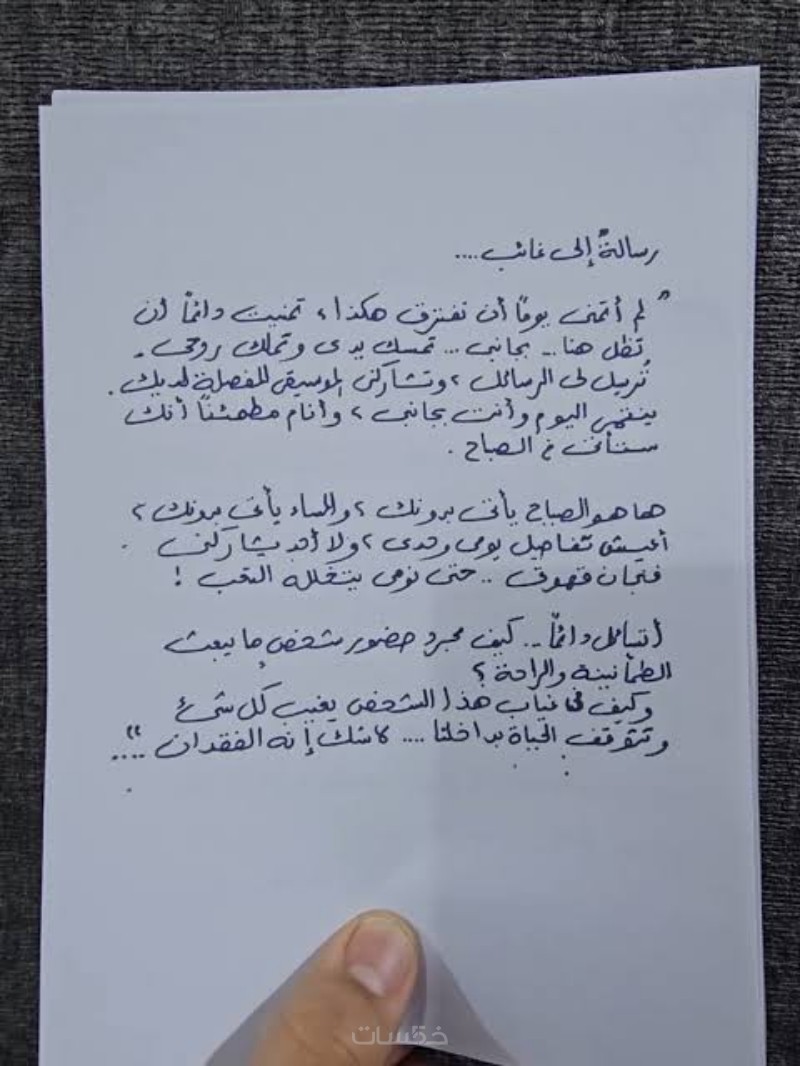 رسالةٌ إلى غائب....
" لم أتمنى يومًا أن نفترق هكذا، تمنيت دائمًا أن
تظل هنا... بجانبي... تمسك يدي وتملك روحي.
تُرسل لي الرسائل، وتشاركني الموسيقى المفضلة لديك.
ينتهي اليوم وأنت بجانبي، وأنام مطمئنًا أنك
ستأتي في الصباح.
ها هو الصباح يأتي بدونك، والمساء يأتي بدونك،
أعيش تفاصيل يومي وحدي، ولا أحد يشاركني
فنجان قهوتي.. حتى نومي يتخلله التعب!
أتسائل دائمًا... كيف مجرد حضور شخصٍ ما يبعث
الطمأنينة والراحة؟
وكيف في غياب هذا الشخص يغيب كل شئ
وتتوقف الحياة بداخلنا.... لا شك إنه الفقدان...."
خمسات